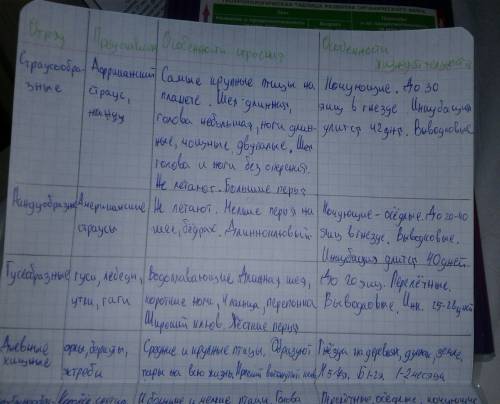 ГЕОХРОНОЛОГИЧЕСКАЯ ТАБЛИЦА РАЗВИТИЯ ОРГАНИЧЕСКОГО МИРА
Отряд
Особенности строения
Особенности
Страусообра-
зные
Африканский
страус,
нанду
Самые крупные птицы на
планете. Шея-длинная,
голова небольшая, ноги длин-
ные, мощные, двупалые. Шея
голова и ноги без оперения.
Не летают. Большие перья
Кочующие. До 30
яиц в гнезде Инкубация
длится 42 дня. Выводковые.
Нандуобразные
Американские
страусы
Не летают. Мелкие перья на
шее, бёдрах. Длинноклювый
Кочующие-оседлые. До 20-40
яиц в гнезде. Выводковые.
Инкубация длится 40 дней.
Гусеобразные
гуси, лебеди,
утки, гаги
Водоплавающие Длинная шея,
короткие ноги, 4 пальца, перепонка
Широкий клюв. Жёсткие перья
До 20 яиц. Перелётные.
Выводковые. Инк.
Дневные
хищные
орлы, беркуты,
ястребы
Средние и крупные птицы. Образуют
пары на всю жизнь.
Гнёзда на деревьях, земле,
1-2 месяца
и мелкие птицы.
оседлые, кочующие